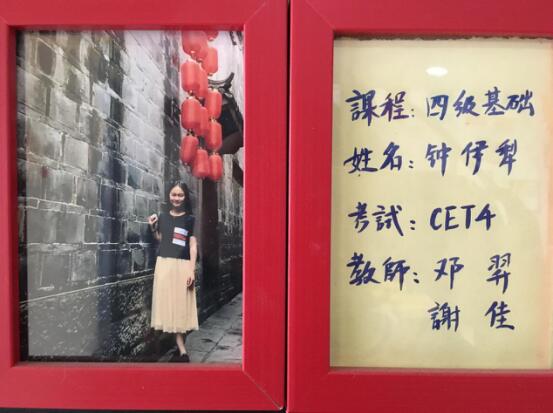 課程:四级基础
姓名:钟伊犁
考試:CET4
教師:邓羿
謝佳